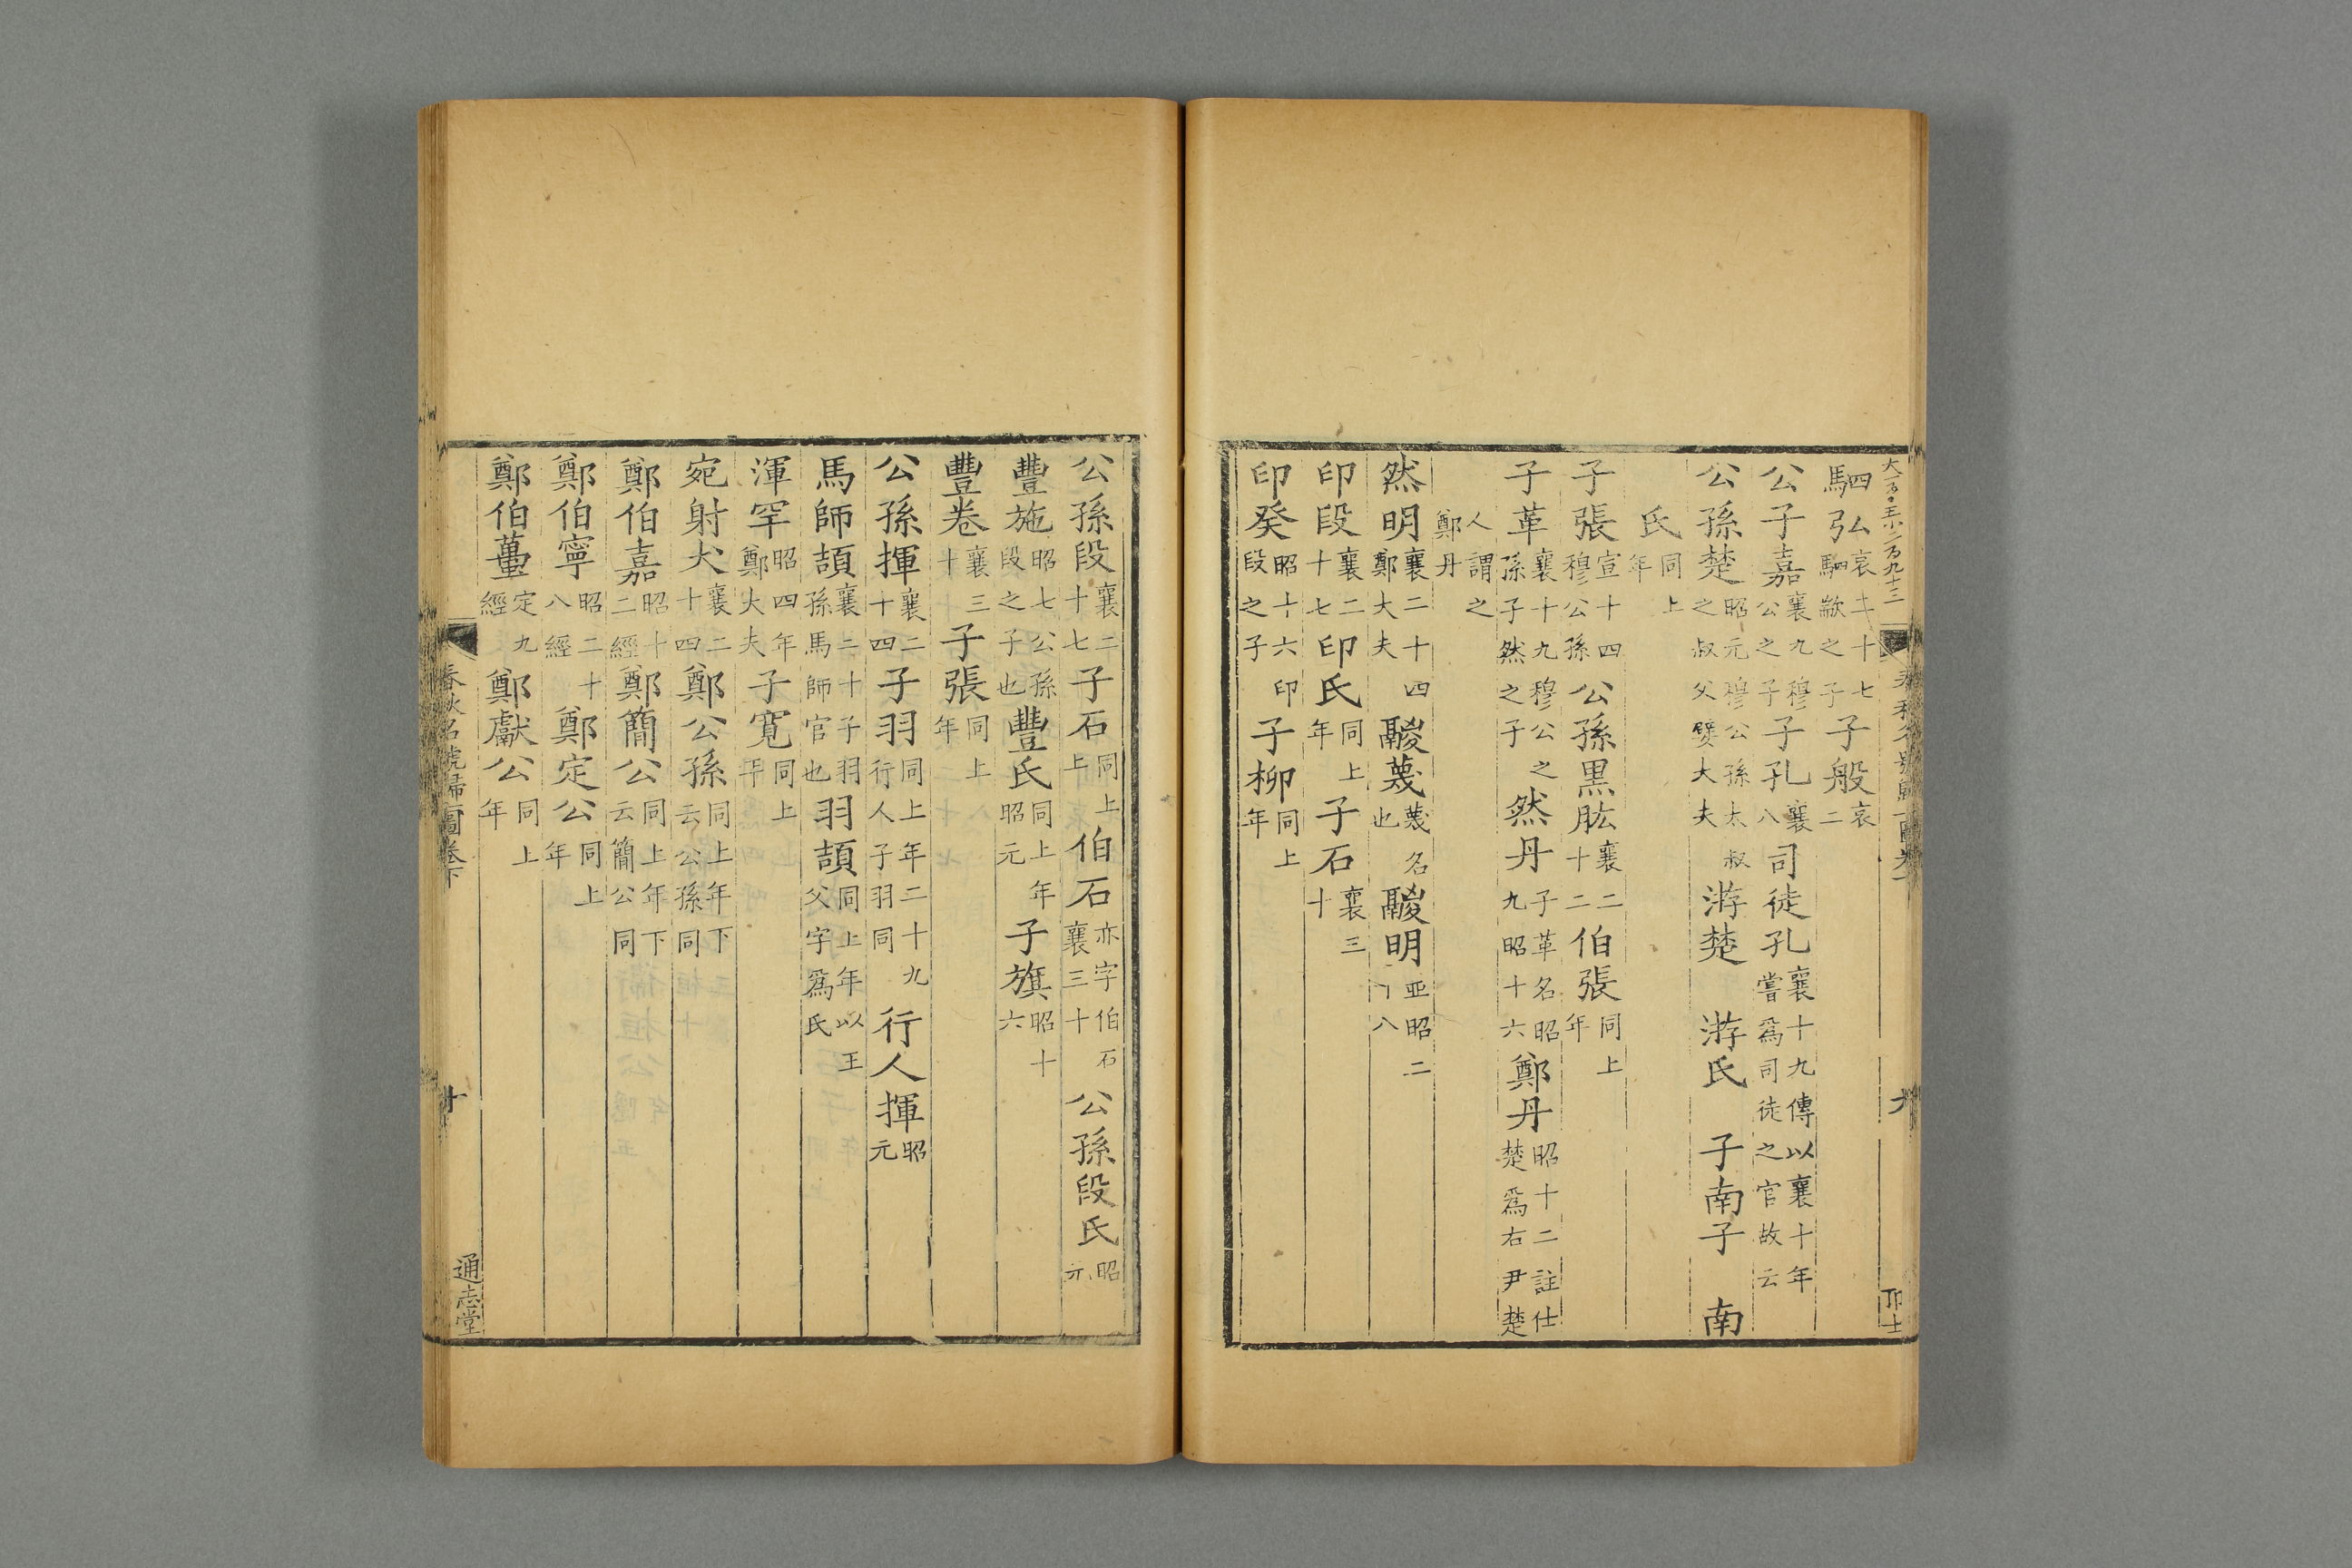 駟弘哀二十七駟歂之子子般哀二
公子嘉襄九穆公之子子孔襄八司徒孔襄十九傳以襄十年嘗爲司徒之官故云
公孫楚昭元穆公孫太叔之叔父嬖大夫游楚 游氏 子南子 南
氏同上年
子張宣十四穆公孫公孫黒肱襄二十二伯張同上年
子革襄十九穆公之孫子然之子然丹子革名昭九昭十六鄭丹昭十二註仕楚爲右尹楚
人謂之鄭丹
然明襄二十四鄭大夫鬷蔑蔑名也鬷明昭二八
印段襄二十七印氏同上年子石襄三十
印癸昭十六印段之子子柳同上年
公孫段襄二十七子石同上年伯石亦字伯石襄三十公孫段氏昭元
豐施昭七公孫段之子也豐氏同上年昭元子旗昭十六
豐卷襄三十子張同上年
公孫揮襄二十四子羽同上年二十九行人子羽同行人揮昭元
馬師頡襄二十子羽孫馬師官也羽頡同上年以王父字爲氏
渾罕昭四年鄭大夫子寬同上年
宛射犬襄二十四鄭公孫同上年下云公孫同
鄭伯嘉昭十二經鄭簡公同上年下云簡公同
鄭伯寧昭二十八經鄭定公同上年
鄭伯蠆定九經鄭獻公同上年
春秋名號歸一圖卷下
十
通志堂